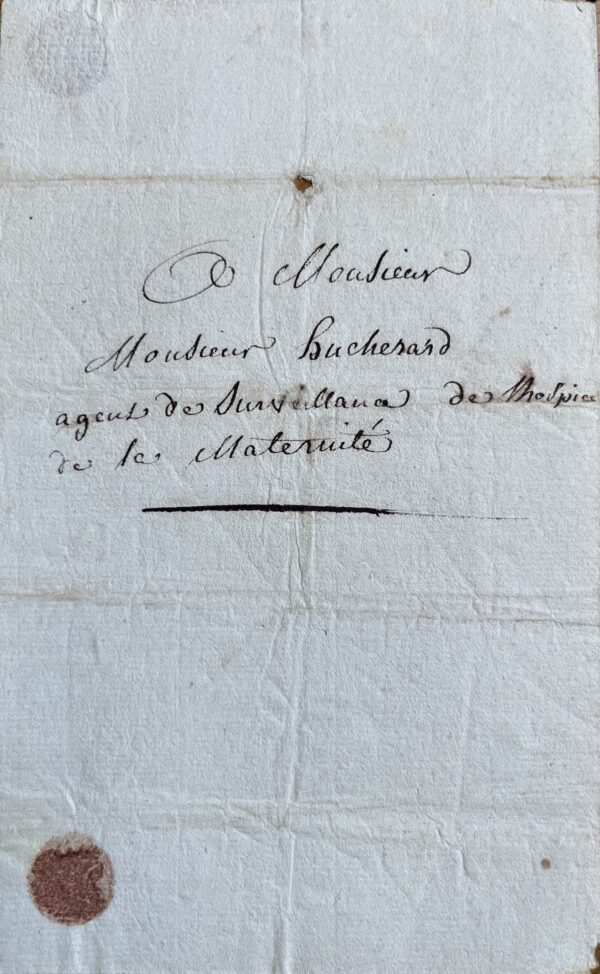 A Monsieur
Monsieur hucherard
agent de Surveillance de Lhospice
de la Maternité